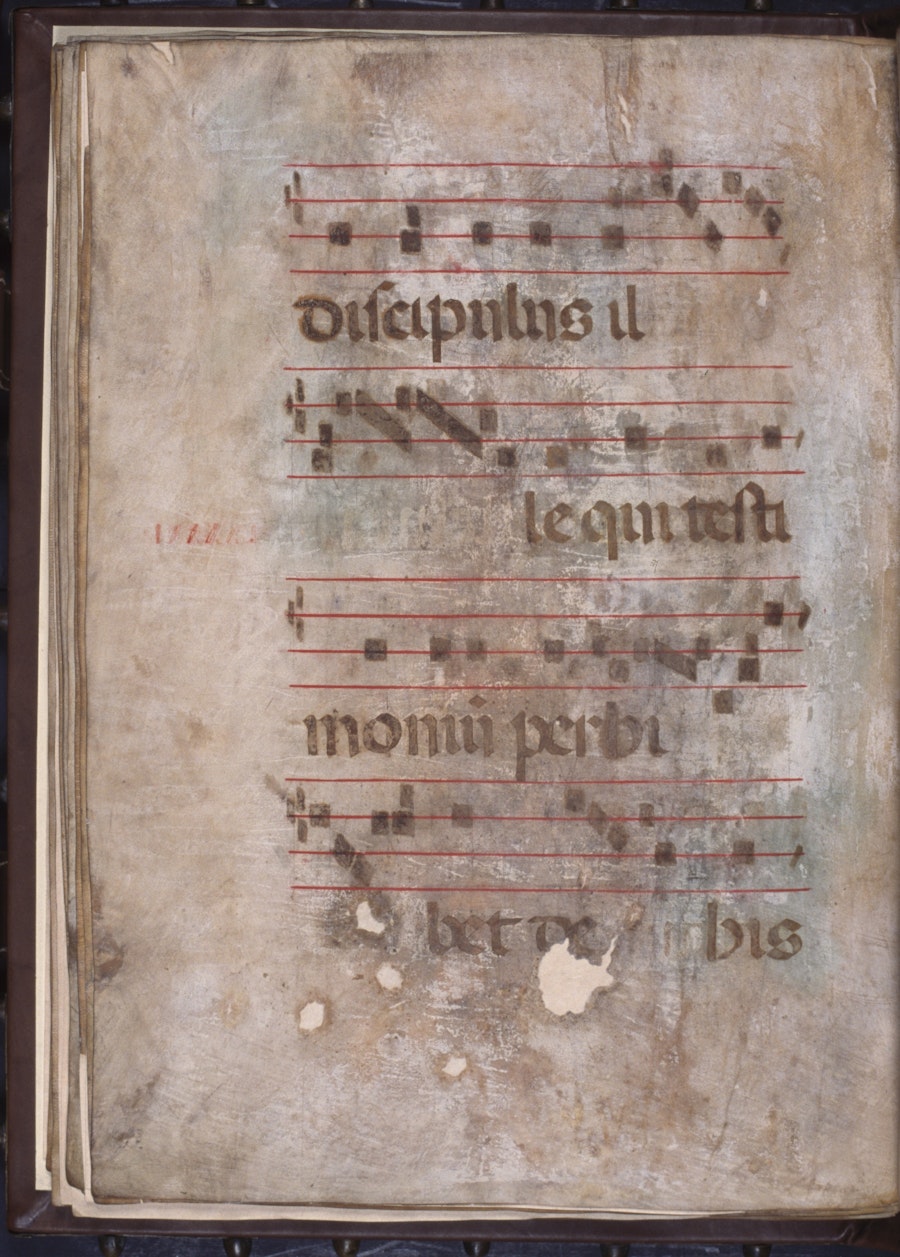 discipulus il
le qui testi
moniũ perhi
bet de his